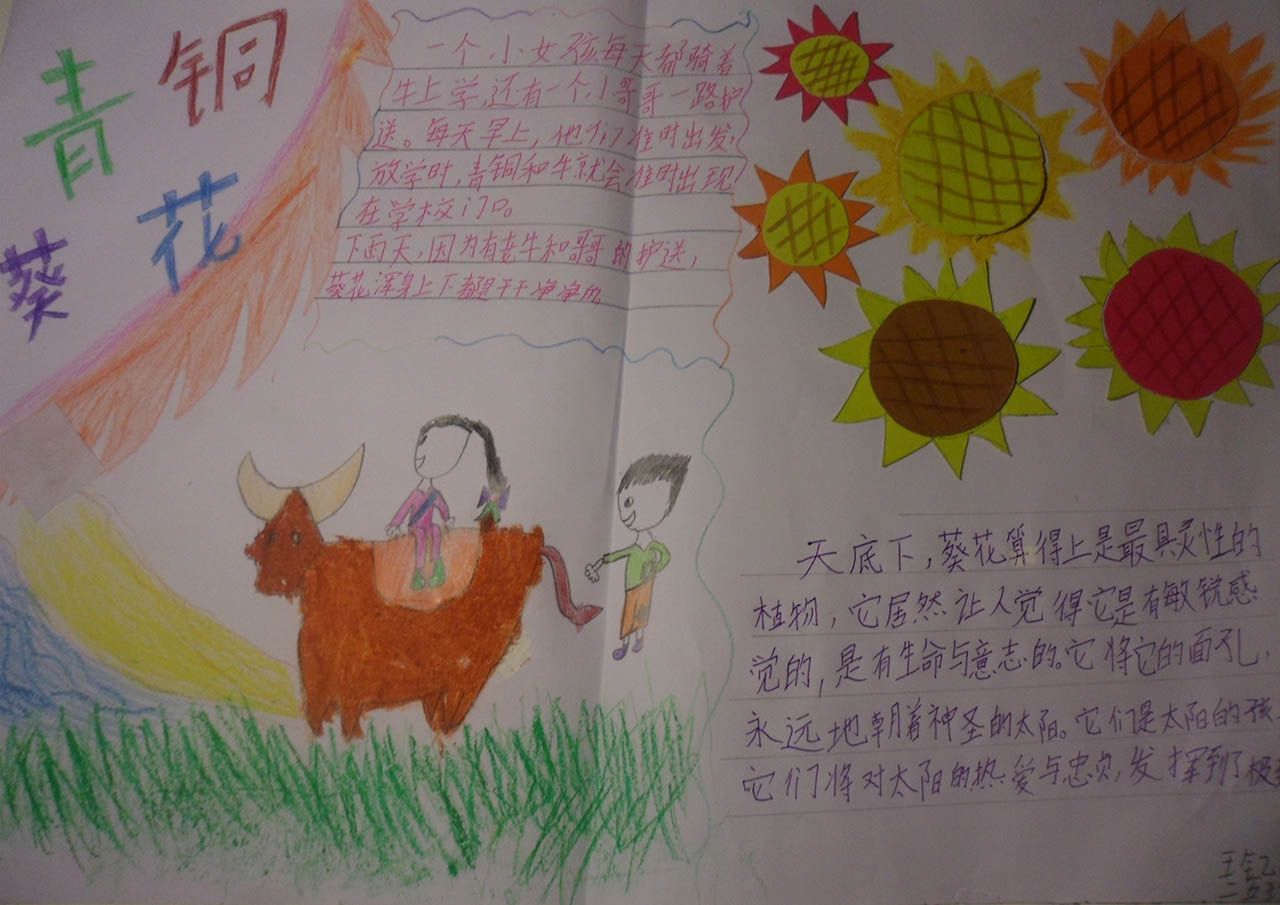 青铜
葵花
一个小女孩每天都骑着
牛上学,还有一个小哥哥一路护
送。每天早上,他们准时出发,
放学时,青铜和牛就会准时出现
在学校门口。
下雨天,因为有老牛和哥哥的护送,
葵花浑身上下都是干干净净的
天底下,葵花算得上是最具灵性的
植物,它居然让人觉得它是有敏锐感
觉的,是有生命与意志的。它将它的面孔,
永远地朝着神圣的太阳。它们是太阳的孩
它们将对太阳的热爱与忠贞,发挥到了极